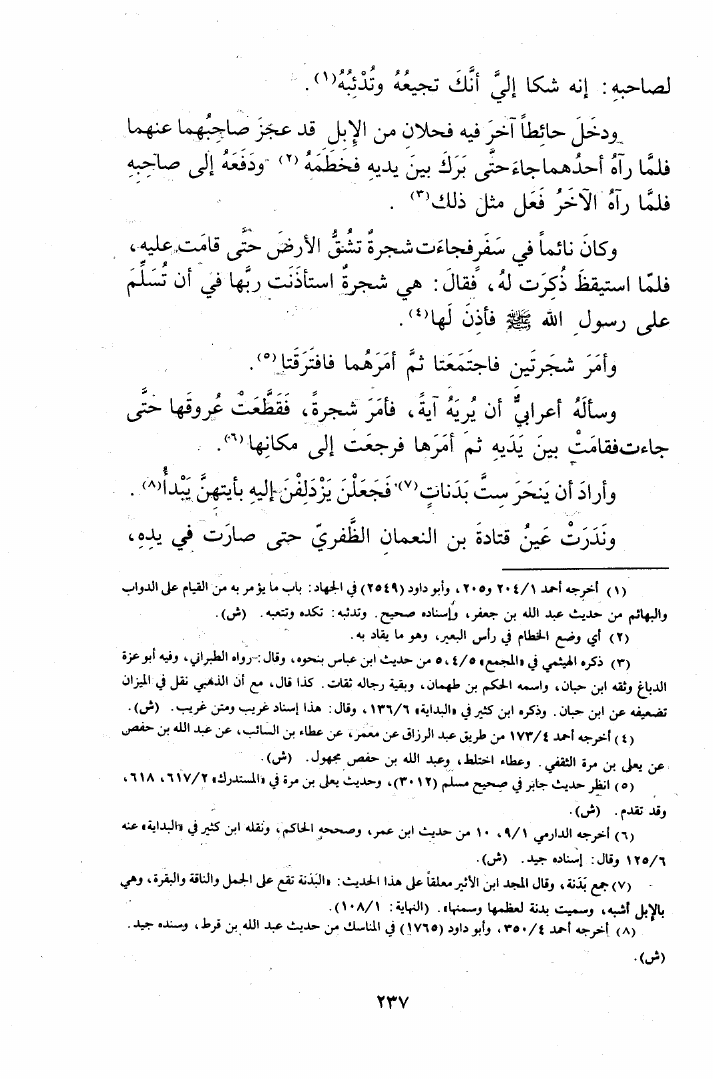 لصاحبهِ: إنه شكا إليَّ أنَّكَ تجيعُهُ وتُدْئِبُهُ(١).
ودخَلَ حائِطاً آخَرَ فيه فحلانِ من الإِبلِ قد عجَزَ صاحِبُهما عنهما
فلمَّا رآهُ أحدُهما جاءَ حتَّى بَرَكَ بينَ يديهِ فخَطَمَهُ(٢) ودَفَعَهُ إلى صاحِبِهِ
فلمَّا رآهُ الآخَرُ فَعَل مثلَ ذلك(٣).
وكانَ نائماً في سَفَرٍ فجاءَت شجرةٌ تشُقُّ الأرضَ حتَّى قامَت عليه،
فلمّا استيقظَ ذُكِرَت لهُ، فقالَ: هي شجرةٌ استأذَنَت ربَّها في أن تُسَلِّمَ
على رسولِ الله ﷺ فأذِنَ لَها(٤).
وأمَرَ شجَرتَين فاجتَمَعَتا ثمَّ أمَرَهُما فافتَرَقَتا(٥).
وسألَهُ أعرابيٌّ أن يُريَهُ آيةً، فأمَرَ شجرةً، فَقَطَّعَتْ عُروقَها حتَّى
جاءت فقامَتْ بينَ يَدَيهِ ثمَ أمَرَها فرجعَت إلى مكانِها(٦).
وأرادَ أن يَنحَرَ سِتَّ بَدَناتٍ(٧) فَجَعَلْنَ يَزْدَلِفْنَ إليهِ بأيتهنَّ يَبْدأُ(٨).
ونَدَرَتْ عَينُ قتادةَ بن النعمان الظَّفريّ حتى صارَت في يدِهِ،
(١) أخرجه أحمد ٢٠٤/١ و٢٠٥، وأبو داود (٢٥٤٩) في الجهاد: باب ما يؤمر به من القيام على الدواب
والبهائم من حديث عبد الله بن جعفر، وإسناده صحيح. وتدئبه: تكده وتتعبه. (ش).
(٢) أي وضع الخطام في رأس البعير، وهو ما يقاد به.
(٣) ذكره الهيثمي في «المجمع» ٤/٥، ٥ من حديث ابن عباس بنحوه، وقال: رواه الطبراني، وفيه أبو عزة
الدباغ وثقه ابن حبان، واسمه الحكم بن طهمان، وبقية رجاله ثقات. كذا قال، مع أن الذهبي نقل في الميزان
تضعيفه عن ابن حبان. وذكره ابن كثير في «البداية» ١٣٦/٦، وقال: هذا إسناد غريب ومتن غريب. (ش).
(٤) أخرجه أحمد ١٧٣/٤ من طريق عبد الرزاق عن معمر، عن عطاء بن السائب، عن عبد الله بن حفص
عن يعلى بن مرة الثقفي. وعطاء اختلط، وعبد الله بن حفص مجهول. (ش).
(٥) انظر حديث جابر في صحيح مسلم (٣٠١٢)، وحديث يعلى بن مرة في «المستدرك» ٦١٧/٢، ٦١٨،
وقد تقدم. (ش).
(٦) أخرجه الدارمي ٩/١، ١٠ من حديث ابن عمر، وصححه الحاكم، ونقله ابن كثير في «البداية» عنه
١٢٥/٦ وقال: إسناده جيد. (ش).
(٧) جمع بَدَنة، وقال المجد ابن الأثير معلقاً على هذا الحديث: «البَدَنة تقع على الجمل والناقة والبقرة، وهي
بالإبل أشبه، وسميت بدنة لعظمها وسمنها». (النهاية: ١٠٨/١).
(٨) أخرجه أحمد ٣٥٠/٤، وأبو داود (١٧٦٥) في المناسك من حديث عبد الله بن قرط، وسنده جيد.
(ش).
٢٣٧